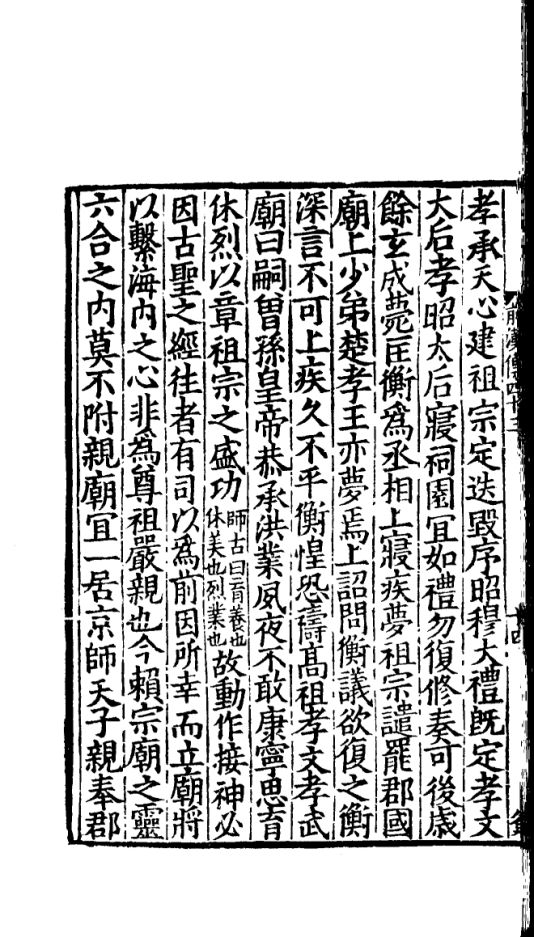 孝承天心建祖宗定迭毀序昭穆大禮既定孝文
大后孝昭太后寢祠園宜如禮勿復修奏可後歲
餘玄成薨匡衡爲丞相上寢疾夢祖宗譴罷郡國
廟上少弟楚孝王亦夢焉上詔問衡議欲復之衡
深言不可上疾久不平衡惶恐禱高祖孝文孝武
廟曰嗣曾孫皇帝恭承洪業夙夜不敢康寧思育
休烈以章祖宗之盛功師古曰育養也休美也烈業也故動作接神必
因古聖之經往者有司以爲前因所幸而立廟將
以繫海内之心非爲尊祖嚴親也今賴宗廟之靈
六合之内莫不附親廟宜一居京師天子親奉郡